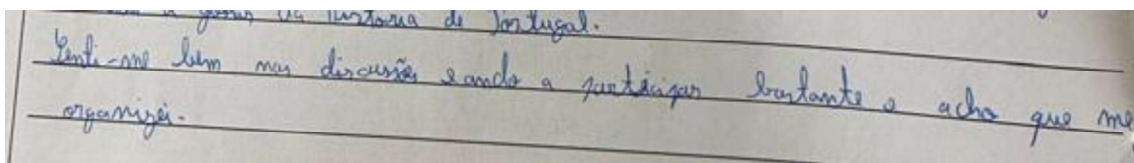 a gostar da história de Portugal.
Senti-me bem nas discussões e ando a participar bastante e acho que me
organizei.